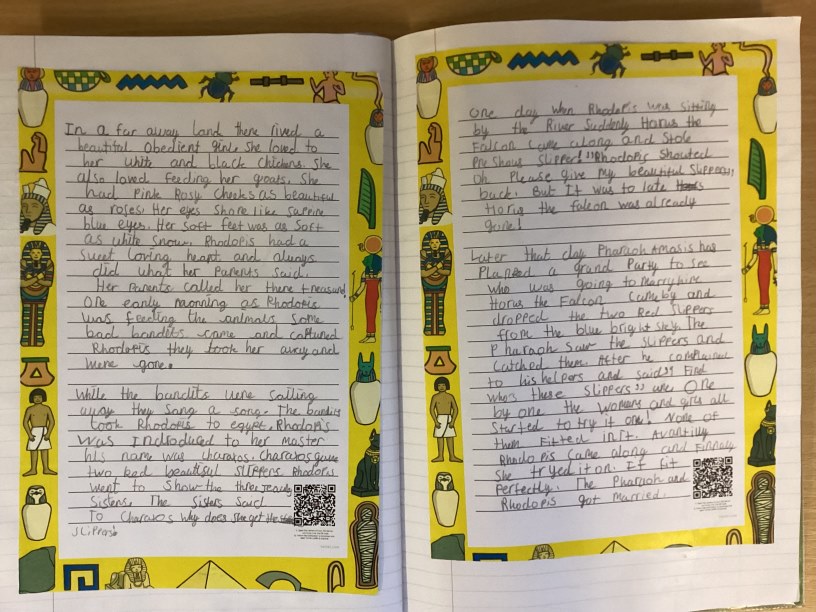 In a far away land there lived a
beautiful Obedient girl. She loved to
her white and black chickens. She
also loved feeding her goats. She
had Pink Rosy Cheeks as beautiful
as roses. Her eyes Shone like Saffire
blue eyes. Her soft feet was as Soft
as white snow. Rhodopis had a
sweet loving heart and always
did what her Parents said.
Her Parents called her there treasure.
One early morning as Rhodopis
was feeding the animals some
bad bandits came and captured
Rhodopis they took her away and
were gone.
While the bandits were sailing
away they Sang a song. The bandits
took Rhodopis to egypt. Rhodopis
was Indroduced to her master
his name was charaxos. Charaxos gave
two red beautiful Slippers. Rhodopis
went to Show the three
Sisters. The Sisters said
To charaxos why does She get the
Slippras
One day when Rhodopis was sitting
by the River Suddenly Horus the
Falcon came along and Stole
Preshous Slipper! "Rhodopis Shouted
Oh Please give my beautiful Slippers,,
back. But It was to late
Horus the falcon was already
gone!
Later that day Pharaoh Amasis has
Planned a grand Party to See
who was going to marry him
Horus the Falcon Came by and
dropped the two Red Slippers
from the blue bright sky. The
Pharaoh Saw the Slippers and
Catched them. After he complained
to his helpers and said" Find
who's these Slippers" are One
by one the Womans and girls all
Started to try it one! None of
them Fitted In It.
Rhodopis Came along and Finnaly
She tryed it on. It fit
Perfectly. The Pharaoh and
Rhodopis got married.